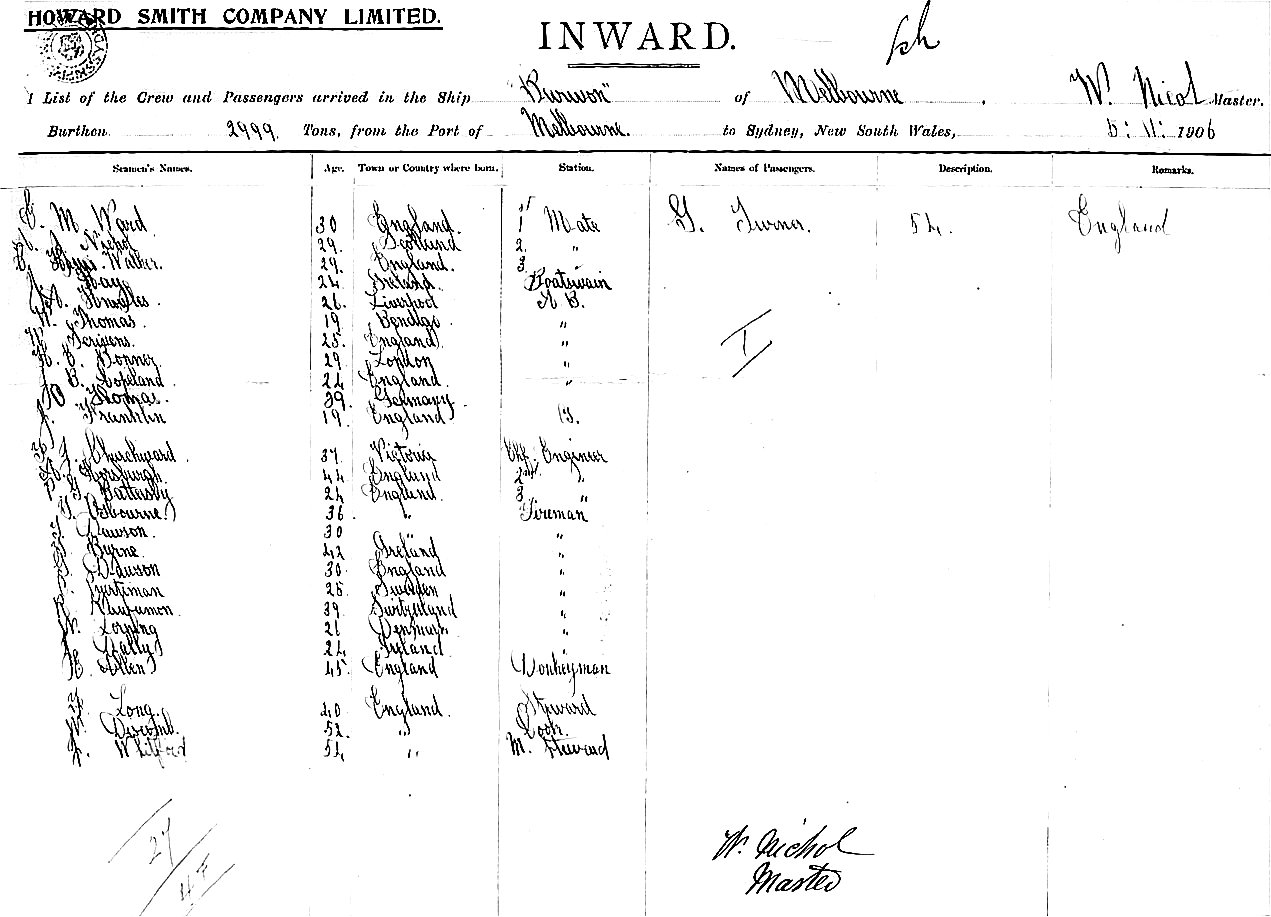 HOWARD SMITH COMPANY LIMITED.
INWARD.
List of the Crew and Passengers arrived in the Ship "Burwon" of Melbourne, W. Nicol Master.
Burthen 2999 Tons, from the Port of Melbourne. to Sydney, New South Wales, 5: 11: 1906
Seamen's Names. Age. Town or Country where born. Station. Names of Passengers. Description. Remarks.
M. Ward 30 England. 1st Mate G. Turner. 54. England
Nichol 29. Scotland 2. "
Walker. 29. England. 3. "
Hay 24 Ireland. Boatswain
26. Liverpool A B.
W. Thomas. 19 Bendigo "
Scrivens. 25. England "
Bonner 29 London "
Copeland. 24 England. "
Thomas. 39. Germany. "
Franklin 19. England
Churchward. 37. Victoria Chf. Engineer
Horsburgh. 44 England 2nd "
Battersby 24 England. 3 "
Osbourne. 36. " Fireman
Dawson. 30 "
Byrne. 42 Ireland "
Dawson 30. England "
28. Sweden "
39. Switzerland "
21 Denmark "
24. Ireland "
E. Allen 45. England Donkeyman
Long. 40 England. Steward
52. " Cook.
Whitford 54, " M. Steward
27
W. Nichol
Master